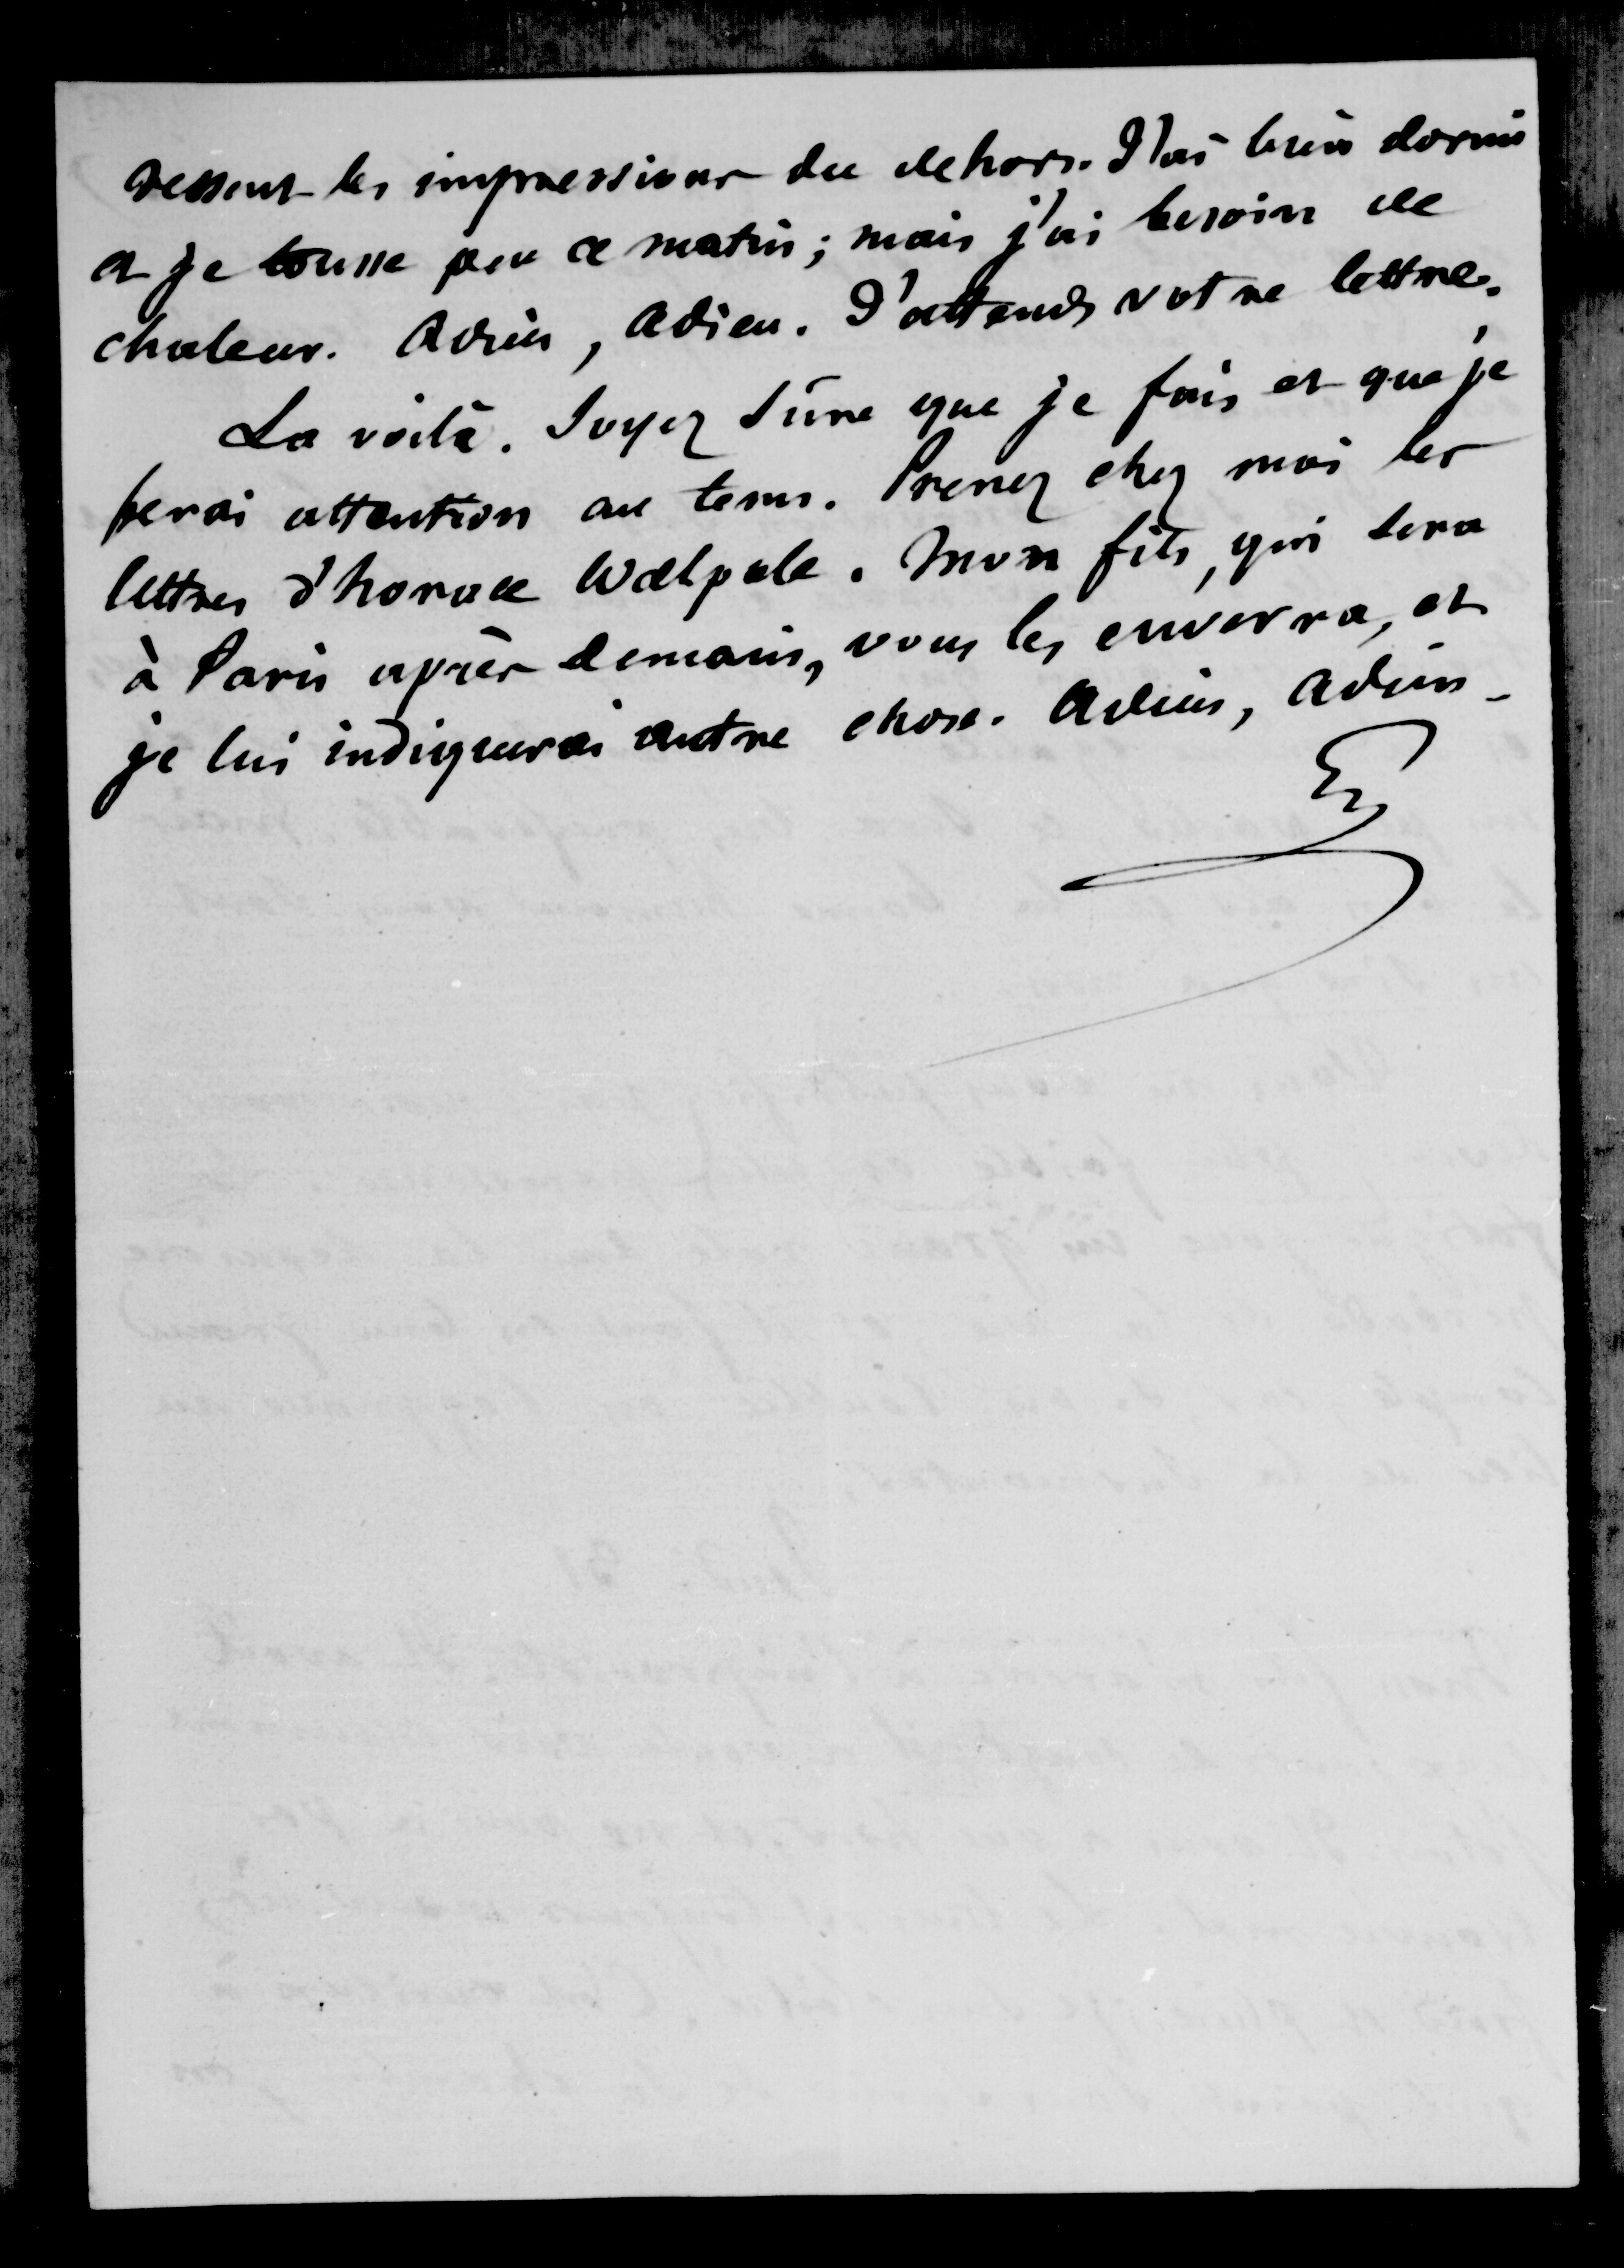 ressent les impressions du dehors. J'ai bien dormi
et je tousse peu ce matin ; mais j'ai besoin de
chaleur. Adieu, Adieu. J'attends votre lettre.
La voilà. Soyez sûre que je fais et que je
ferai attention au tems. Prenez chez moi les
lettres d'horace Walpole. Mon fils, qui sera
à Paris après demain, vous les enverra, et
je lui indiquerai autre chose. Adieu, Adieu -